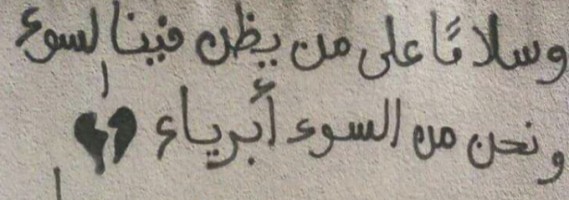 وسلامًا على من يظن فينا السوء
ونحن من السوء أبرياء